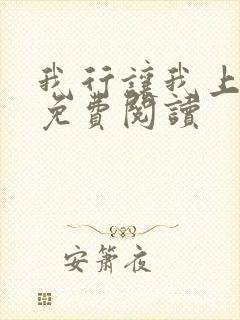 我行讓我上
免費閱讀
安簫夜